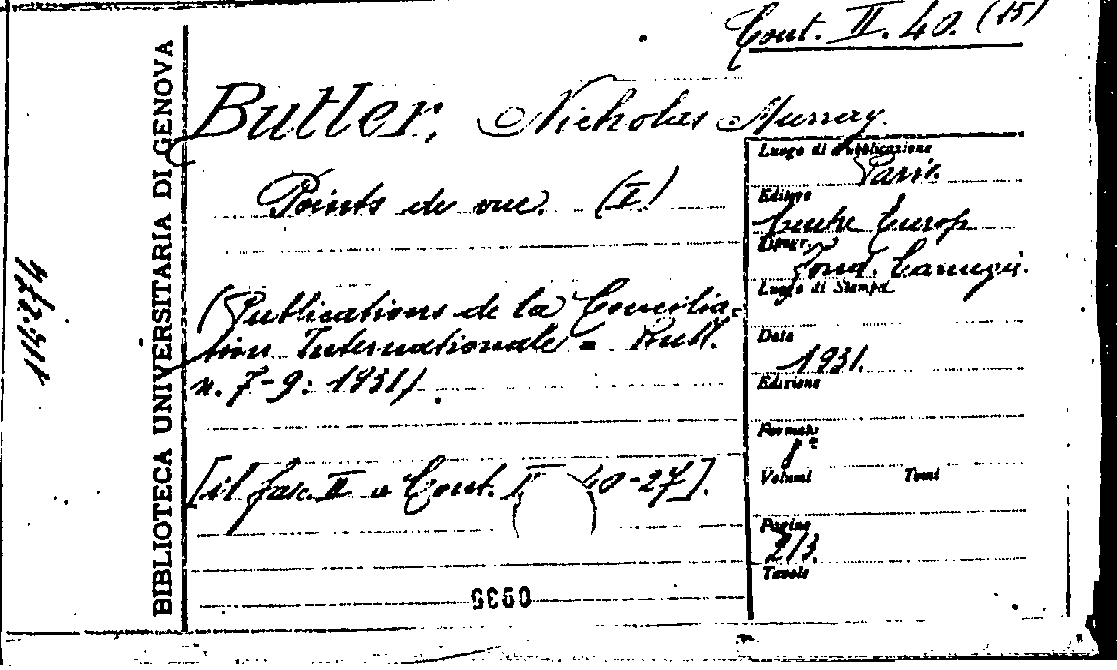 Cont. II. 40. (15)
BIBLIOTECA UNIVERSITARIA DI GENOVA
Butler, Nicholas Murray.
Points de vue. (I)
(Publications de la Concilia-
tion Internationale = Bull.
n. 7-9: 1931).
[il fasc. II a Cont. 40-27].
0935
Luogo di Pubblicazione
Paris.
Editore
Centre Europ
Fond. Carnegie.
Luogo di Stampa
Data
1931.
Edizione
Formato
8°
Volumi Tomi
Pagine
213.
Tavole